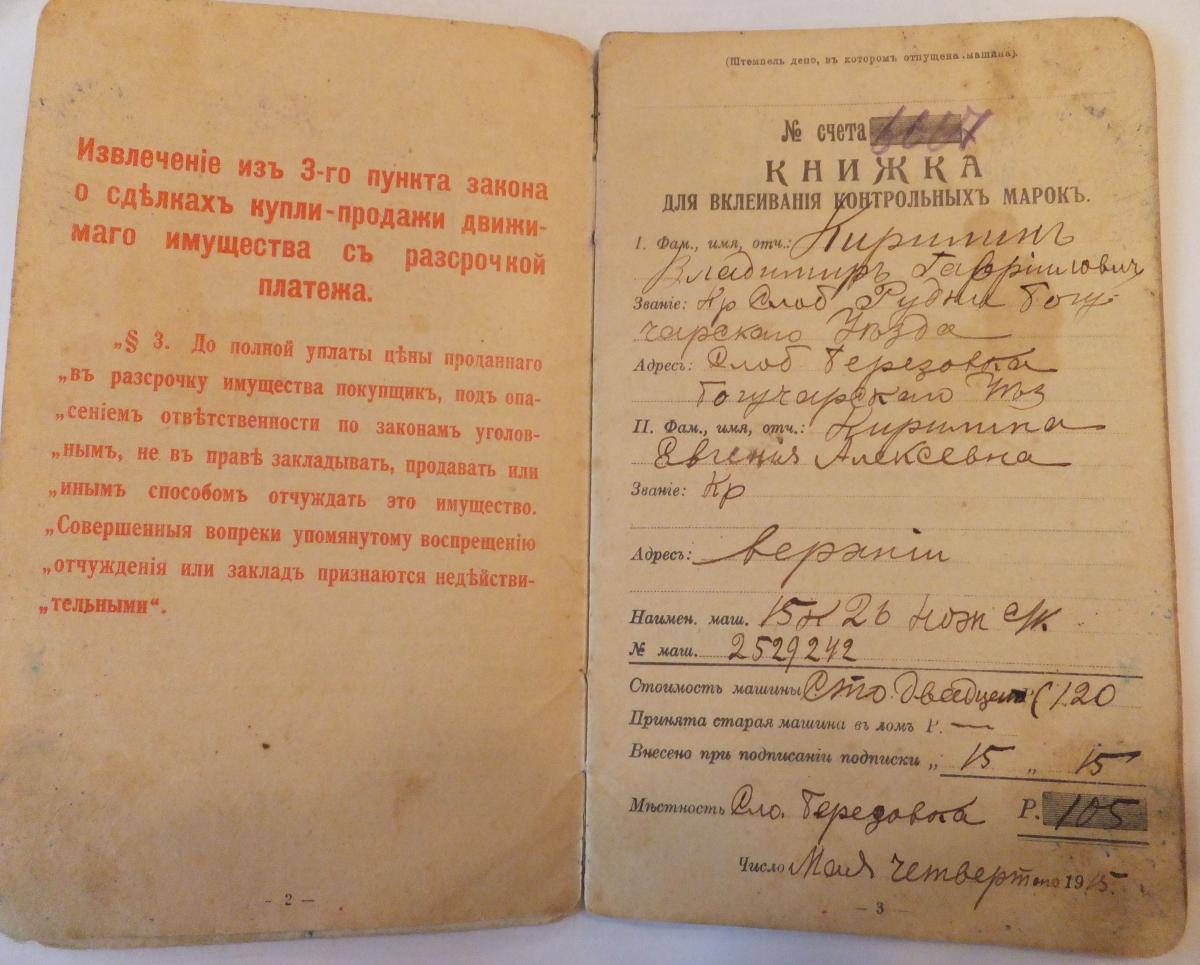 Извлеченіе изъ 3-го пункта закона
о сдѣлкахъ купли-продажи движи-
маго имущества съ разсрочкой
платежа.
„§ 3. До полной уплаты цѣны проданнаго
„въ разсрочку имущества покупщикъ, подъ опа-
„сеніемъ отвѣтственности по законамъ уголов-
„нымъ, не въ правѣ закладывать, продавать или
„инымъ способомъ отчуждать это имущество.
„Совершенныя вопреки упомянутому воспрещенію
„отчужденія или закладъ признаются недѣйстви-
„тельными“.
- 2 -
(Штемпель депо, въ которомъ отпущена машина).
№ счета
КНИЖКА
ДЛЯ ВКЛЕИВАНІЯ КОНТРОЛЬНЫХЪ МАРОКЪ.
I. Фам., имя, отч.: Кирилинъ
Владимиръ Гавріиловичъ
Званіе: Кр Слоб Рудни Богу-
чарскаго Уѣзда
Адресъ: Слоб Березовка
Богучарскаго Уѣз
II. Фам., имя, отч.: Кирилина
Евгенія Алексевна
Званіе: Кр
Адресъ: верхній
Наимен. маш. 15К 26 нож
№ маш. 2529242
Стоимость машины Сто двадцать (120
Принята старая машина въ ломъ Р. —
Внесено при подписаніи подписки „ 15 „ 15
Мѣстность Сло. Березовка Р. 105
Число Мая четвертаго 1915.
- 3 -